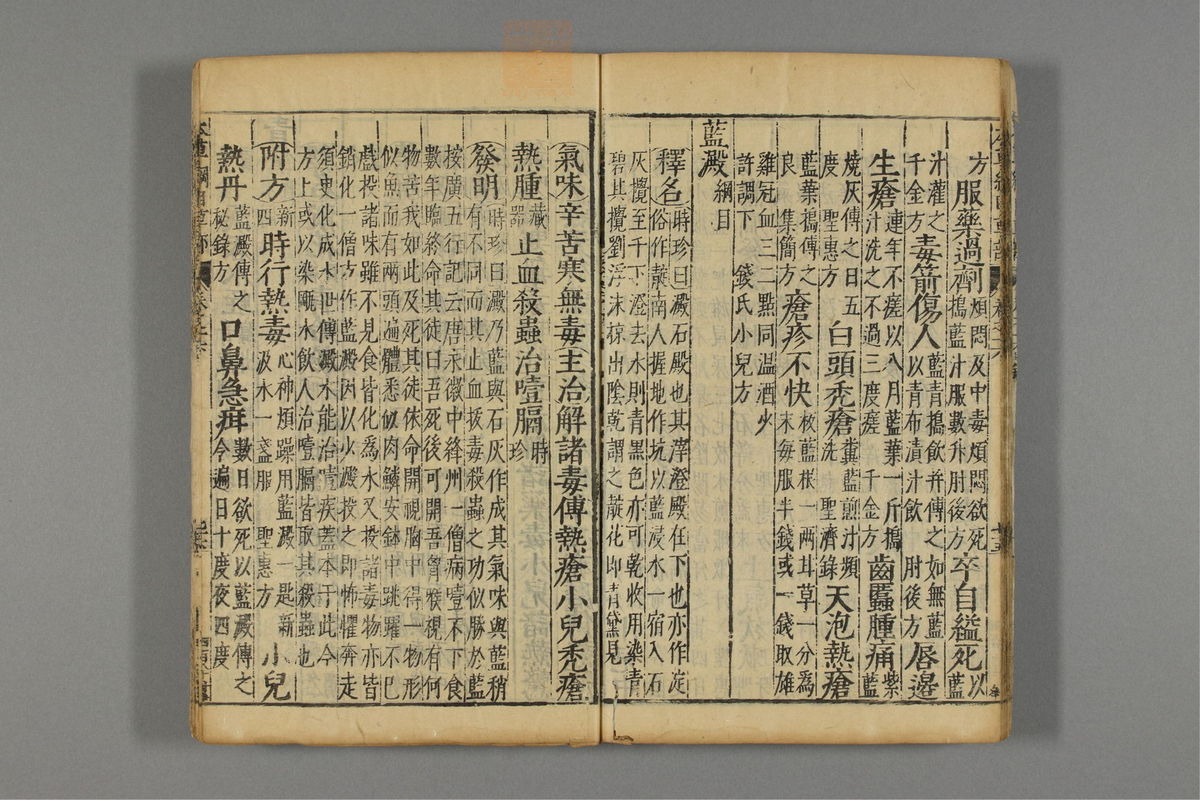 方 服藥過劑 煩悶及中毒煩悶欲死搗藍汁服數升肘後方 卒自縊死 以藍
汁灌之千金方 毒箭傷人 藍青搗飲并傅之如無藍以青布漬汁飲 肘後方 唇邊
生瘡 連年不瘥以八月藍葉一斤搗汁洗之不過三度瘥 千金方 齒䘌腫痛 紫藍
燒灰傅之日五度 聖惠方 白頭秃瘡 糞藍煎汁頻洗 聖濟錄 天泡熱瘡
藍葉搗傅之良 集簡方 瘡疹不快 板藍根一兩甘草一分為末每服半錢或一錢取雄
雞冠血三二點同温酒少許調下 錢氏小兒方
藍澱 綱目
釋名 時珍曰澱石殿也其滓澄殿在下也亦作淀俗作靛南人掘地作坑以藍浸水一宿入石
灰攪至千下澄去水則青黑色亦可乾收用染青碧其攪劉浮沫掠出陰乾謂之靛花即青黛見
氣味 辛苦寒無毒主治解諸毒傅熱瘡小兒秃瘡
熱腫 藏器 止血殺蟲治噎膈 時珍
發明 時珍曰澱乃藍與石灰作成其氣味與藍稍有不同而其止血拔毒殺蟲之功似勝於藍
按廣五行記云唐永徽中絳州一僧病噎不下食數年臨終命其徒曰吾死後可開吾胷喉視有何
物苦我如此及死其徒依命開視胸中得一物形似魚而有兩頭遍體悉似肉鱗安鉢中跳躍不巳
戲投諸味雖不見食皆化為水又投諸毒物亦皆銷化一僧方作藍澱因以少澱投之即怖懼奔走
須史化成水世傳澱水能治噎疾蓋本于此今方士或以染甌水飲人治噎膈皆取其殺蟲也
附方 新四 時行熱毒 心神煩躁用藍澱一匙新汲水一盞服 聖惠方 小兒
熱丹 藍澱傅之秘錄方 口鼻急疳 數日欲死以藍澱傅之令遍日十度夜四度